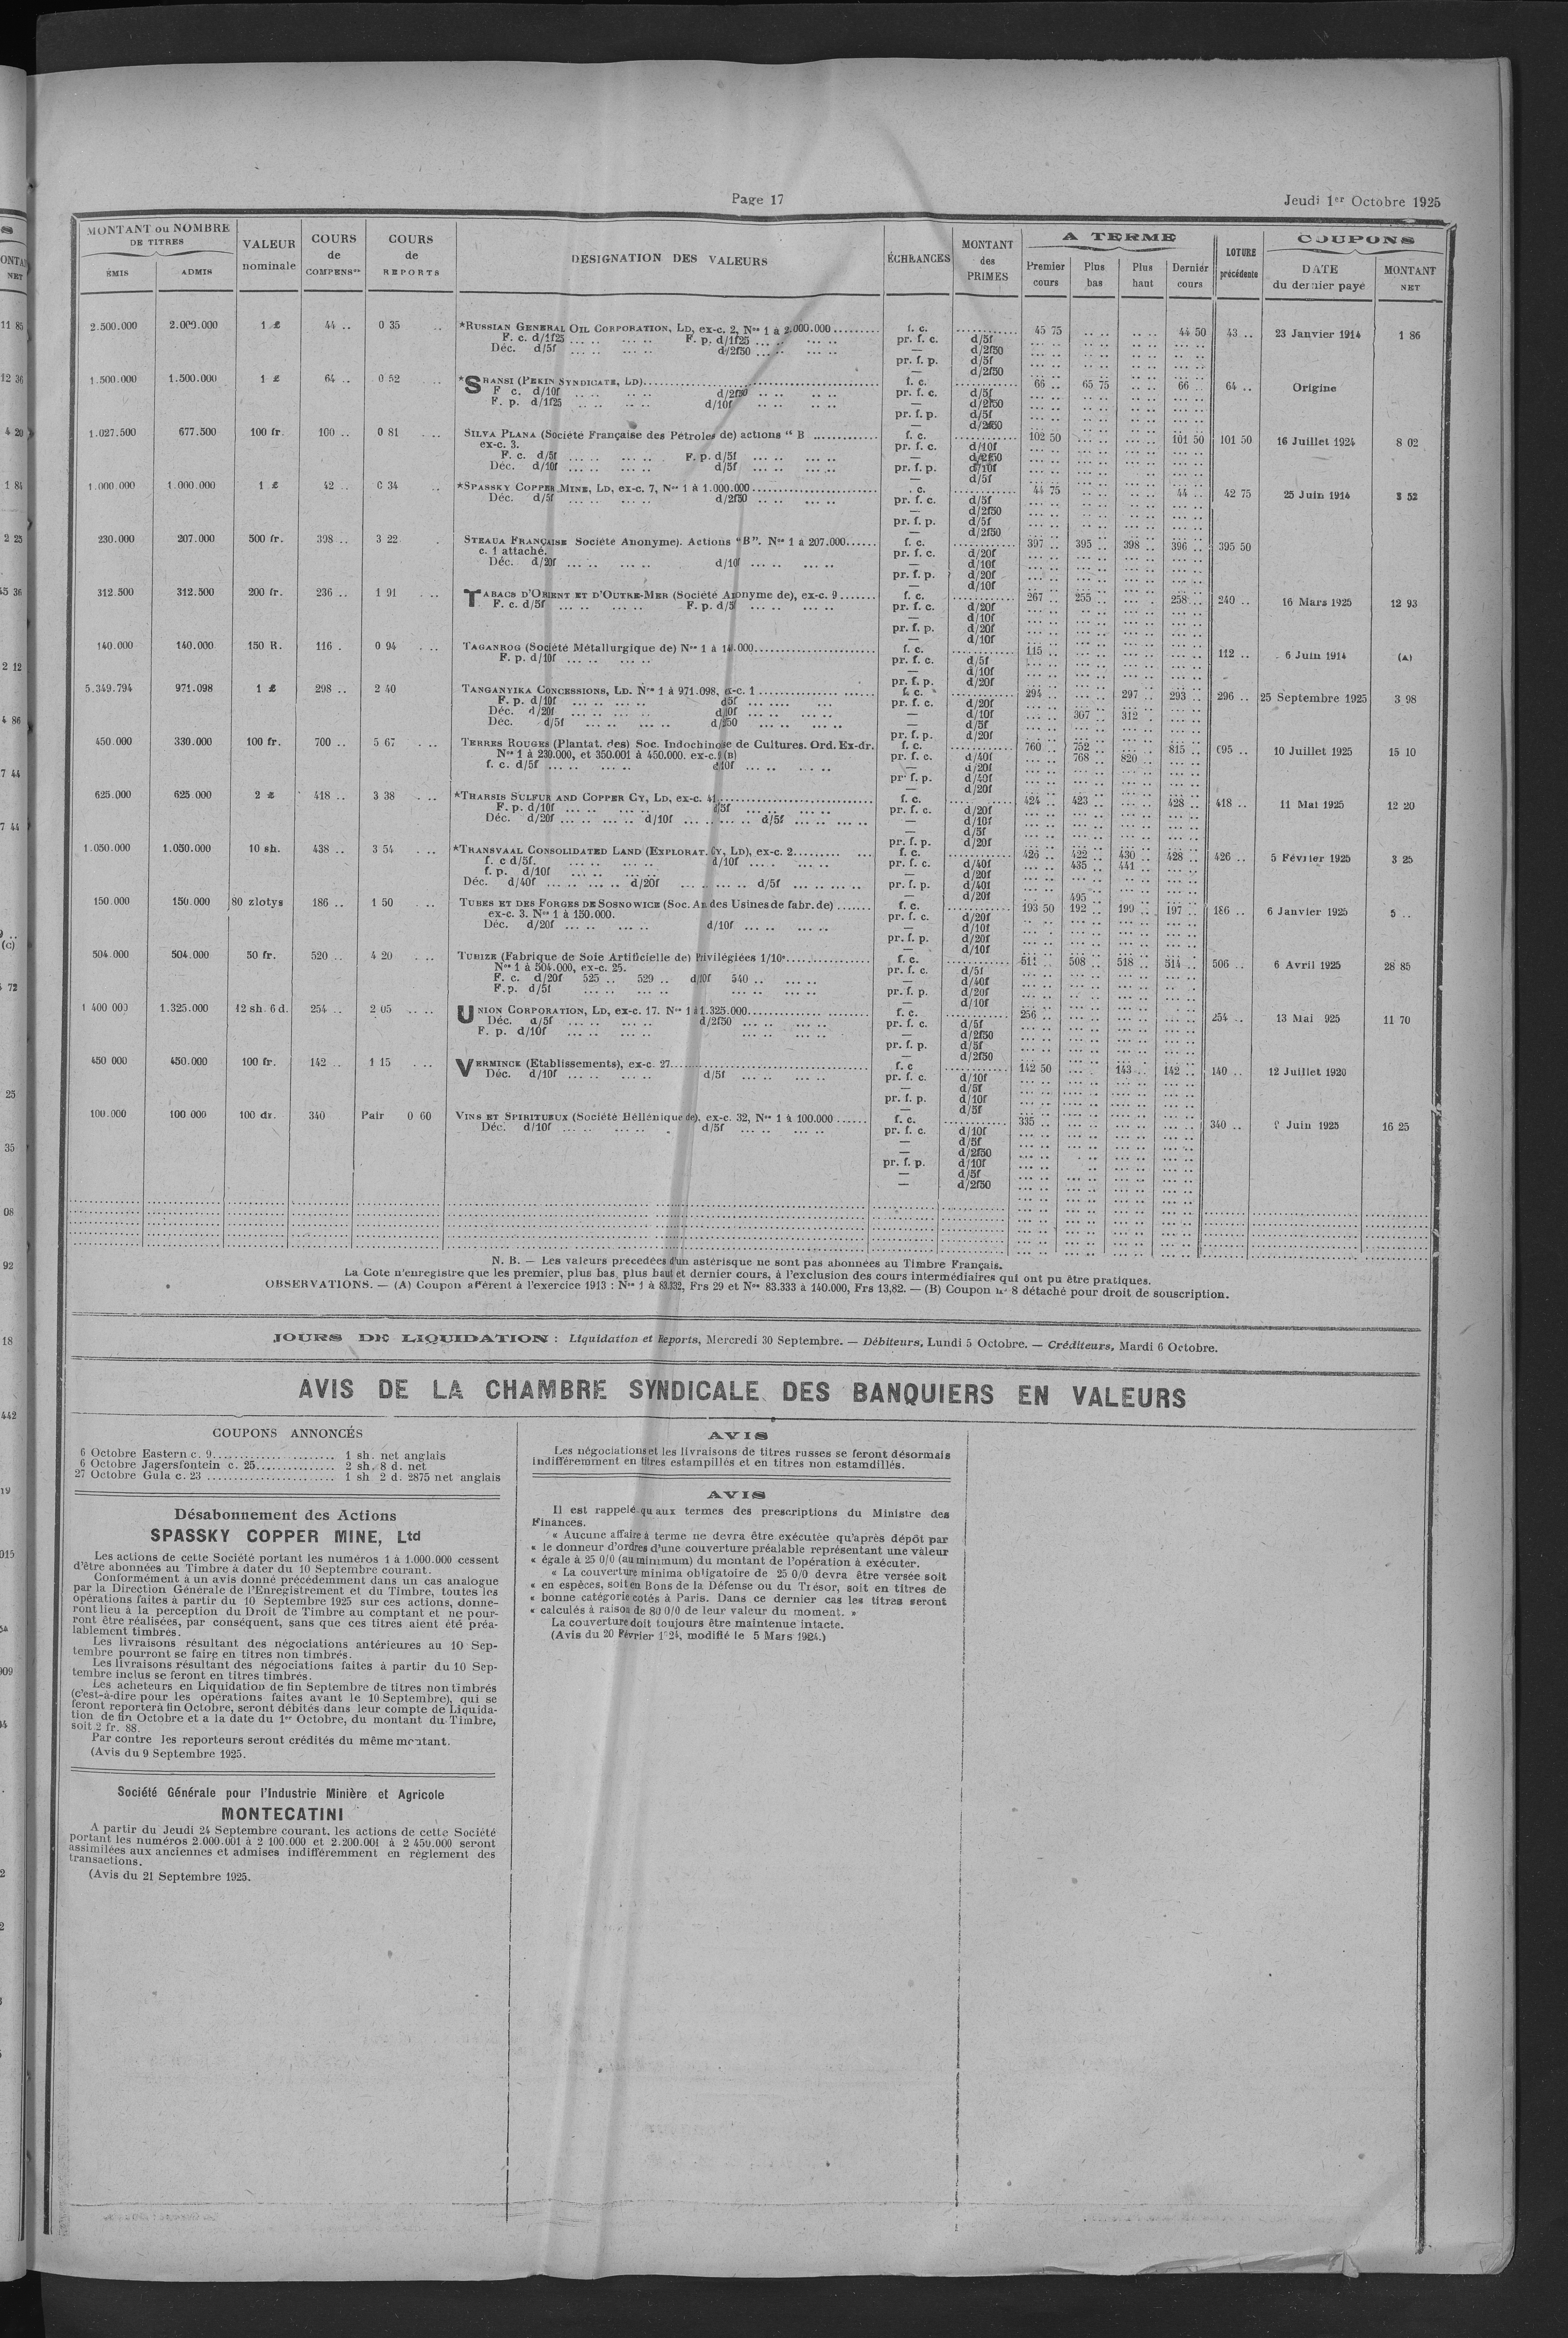 Page 17
Jeudi 1er Octobre 1925
MONTANT ou NOMBRE DE TITRES
ÉMIS ADMIS
VALEUR nominale
COURS de COMPENSon
COURS de REPORTS
DESIGNATION DES VALEURS
ÉCHÉANCES
MONTANT des PRIMES
A TERME
Premier cours Plus bas Plus haut Dernier cours
CLOTURE précédente
COUPONS
DATE du dernier payé
MONTANT NET
2.500.000 2.000.000 1 £ 44 .. 0 35 .. *RUSSIAN GENERAL OIL CORPORATION, LD, ex-c. 2, Nos 1 à 2.000.000 f. c. 45 75 44 50 43 .. 23 Janvier 1914 1 86
F. c. d/1f25 ... .. ... .. F. p. d/1f25 ... .. ... .. pr. f. c. d/5f
Déc. d/5f ... .. ... .. d/2f50 ... .. ... .. — d/2f50
pr. f. p. d/5f
— d/2f50
1.500.000 1.500.000 1 £ 64 .. 0 52 .. *SHANSI (PEKIN SYNDICATE, LD) f. c. 66 .. 65 75 66 .. 64 .. Origine
F c. d/10f .. .. .. .. d/2f50 .. .. .. .. pr. f. c. d/5f
F. p. d/1f25 .. .. .. .. d/10f .. .. .. .. — d/2f50
pr. f. p. d/5f
— d/2f50
1.027.500 677.500 100 fr. 100 .. 0 81 . .. SILVA PLANA (Société Française des Pétroles de) actions " B f. c. 102 50 101 50 101 50 16 Juillet 1924 8 02
ex-c. 3. pr. f. c. d/10f
F. c. d/5f ... .. ... .. F. p. d/5f ... .. ... .. — d/2f50
Déc. d/10f ... .. ... .. d/5f ... .. ... .. pr. f. p. d/10f
— d/5f
1.000.000 1.000.000 1 £ 42 .. 0 34 .. *SPASSKY COPPER MINE, LD, ex-c. 7, Nos 1 à 1.000.000 . c. 44 75 44 .. 42 75 25 Juin 1914 3 52
Déc. d/5f ... .. ... .. d/2f50 .. .. .. .. pr. f. c. d/5f
— d/2f50
pr. f. p. d/5f
— d/2f50
230.000 207.000 500 fr. 398 .. 3 22 . STEAUA FRANÇAISE Société Anonyme). Actions "B". Nos 1 à 207.000 f. c. 397 .. 395 .. 398 .. 396 .. 395 50
c. 1 attaché. pr. f. c. d/20f
Déc. d/20f ... .. ... .. d/10f ... .. ... .. — d/10f
pr. f. p. d/20f
— d/10f
312.500 312.500 200 fr. 236 .. 1 91 . .. TABACS D'ORIENT ET D'OUTRE-MER (Société Anonyme de), ex-c. 9 f. c. 267 .. 255 .. 258 .. 240 .. 16 Mars 1925 12 93
F. c. d/5f ... .. ... .. F. p. d/5f ... .. ... .. pr. f. c. d/20f
— d/10f
pr. f. p. d/20f
— d/10f
140.000 140.000 150 R. 116 . 0 94 . .. TAGANROG (Société Métallurgique de) Nos 1 à 140.000 f. c. 115 .. 112 .. 6 Juin 1914 (A)
F. p. d/10f ... .. ... .. pr. f. c. d/5f
— d/10f
pr. f. p. d/20f
5.349.794 971.098 1 £ 298 .. 2 40 TANGANYIKA CONCESSIONS, LD. Nos 1 à 971.098, ex-c. 1 f. c. 294 .. 297 .. 293 .. 296 .. 25 Septembre 1925 3 98
F. p. d/10f ... .. ... .. d5f ... .... ... pr. f. c. d/20f
Déc. d/20f ... .. ... .. d/10f ... .. ... .. — d/10f 307 .. 312 .
Déc. d/5f ... .. ... .. d/2f50 ... .. ... .. — d/5f
pr. f. p. d/20f
450.000 330.000 100 fr. 700 .. 5 67 . .. TERRES ROUGES (Plantat. des) Soc. Indochinoise de Cultures. Ord. Ex-dr. f. c. 760 .. 752 .. 815 .. 695 .. 10 Juillet 1925 15 10
Nos 1 à 230.000, et 350.001 à 450.000. ex-c. 9 (B) pr. f. c. d/40f 768 .. 820 ..
f. c. d/5f ... .. ... .. d/10f ... .. ... .. — d/20f
pr. f. p. d/40f
— d/20f
625.000 625 000 2 £ 418 .. 3 38 . .. *THARSIS SULFUR AND COPPER CY, LD, ex-c. 41 f. c. 424 .. 423 .. 428 .. 418 .. 11 Mai 1925 12 20
F. p. d/10f ... .. ... .. d/5f ... .. ... .. pr. f. c. d/20f
Déc. d/20f ... .. ... .. d/10f ... .. ... .. d/5f ... .. ... .. — d/10f
— d/5f
pr. f. p. d/20f
1.050.000 1.050.000 10 sh. 438 .. 3 54 . .. *TRANSVAAL CONSOLIDATED LAND (EXPLORAT. CY, LD), ex-c. 2 f. c. 426 .. 422 .. 430 .. 428 .. 426 .. 5 Février 1925 3 25
f. c d/5f. ... .. ... .. d/10f ... .. ... .. pr. f. c. d/40f 435 .. 441 ..
f. p. d/10f ... .. ... .. — d/20f
Déc. d/40f ... .. ... .. d/20f ... .. ... .. d/5f ... .. ... .. pr. f. p. d/40f
— d/20f 495 ..
150.000 150.000 80 zlotys 186 .. 1 50 . .. TUBES ET DES FORGES DE SOSNOWICE (Soc. An. des Usines de fabr. de) f. c. 193 50 192 .. 199 .. 197 .. 186 .. 6 Janvier 1925 5 ..
ex-c. 3. Nos 1 à 150.000. pr. f. c. d/20f
Déc. d/20f ... .. ... .. d/10f ... .. ... .. — d/10f
pr. f. p. d/20f
— d/10f
504.000 504.000 50 fr. 520 .. 4 20 . .. TUBIZE (Fabrique de Soie Artificielle de) Privilégiées 1/10e f. c. 511 .. 508 .. 518 .. 514 .. 506 .. 6 Avril 1925 28 85
Nos 1 à 504.000, ex-c. 25. pr. f. c. d/5f
F. c. d/20f 525 .. 529 .. d/10f 540 .. ... .. — d/40f
F. p. d/5f ... .. ... .. ... .. ... .. pr. f. p. d/20f
— d/10f
1 400 000 1.325.000 12 sh. 6 d. 254 .. 2 05 .. .. UNION CORPORATION, LD, ex-c. 17. Nos 1 à 1.325.000 f. c. 256 .. 254 .. 13 Mai 925 11 70
Déc. d/5f ... .. ... .. d/2f50 ... .. ... .. pr. f. c. d/5f
F. p. d/10f ... .. ... .. ... .. ... .. — d/2f50
pr. f. p. d/5f
— d/2f50
450 000 450.000 100 fr. 142 .. 1 15 . .. VERMINCK (Etablissements), ex-c. 27 f. c 142 50 143 .. 142 .. 140 .. 12 Juillet 1920
Déc. d/10f ... .. ... .. d/5f ... .. ... .. pr. f. c. d/10f
— d/5f
pr. f. p. d/10f
— d/5f
100.000 100 000 100 dr. 340 Pair 0 60 VINS ET SPIRITUEUX (Société Hellénique de), ex-c. 32, Nos 1 à 100.000 f. c. 335 .. 340 .. Juin 1925 16 25
Déc. d/10f ... .. ... .. d/5f ... .. ... .. pr. f. c. d/10f
— d/5f
— d/2f50
pr. f. p. d/10f
— d/5f
— d/2f50
N. B. — Les valeurs précédées d'un astérisque ne sont pas abonnées au Timbre Français.
La Cote n'enregistre que les premier, plus bas, plus haut et dernier cours, à l'exclusion des cours intermédiaires qui ont pu être pratiqués.
OBSERVATIONS. — (A) Coupon afférent à l'exercice 1913 : Nos 1 à 83.332, Frs 29 et Nos 83.333 à 140.000, Frs 13,82. — (B) Coupon no 8 détaché pour droit de souscription.
JOURS DE LIQUIDATION : Liquidation et Reports, Mercredi 30 Septembre. — Débiteurs, Lundi 5 Octobre. — Créditeurs, Mardi 6 Octobre.
AVIS DE LA CHAMBRE SYNDICALE DES BANQUIERS EN VALEURS
COUPONS ANNONCÉS
6 Octobre Eastern c. 9 1 sh. net anglais
6 Octobre Jagersfontein c. 25 2 sh. 8 d. net
27 Octobre Gula c. 23 1 sh 2 d. 2875 net anglais
Désabonnement des Actions
SPASSKY COPPER MINE, Ltd
Les actions de cette Société portant les numéros 1 à 1.000.000 cessent
d'être abonnées au Timbre à dater du 10 Septembre courant.
Conformément à un avis donné précédemment dans un cas analogue
par la Direction Générale de l'Enregistrement et du Timbre, toutes les
opérations faites à partir du 10 Septembre 1925 sur ces actions, donne-
ront lieu à la perception du Droit de Timbre au comptant et ne pour-
ront être réalisées, par conséquent, sans que ces titres aient été préa-
lablement timbrés.
Les livraisons résultant des négociations antérieures au 10 Sep-
tembre pourront se faire en titres non timbrés.
Les livraisons résultant des négociations faites à partir du 10 Sep-
tembre inclus se feront en titres timbrés.
Les acheteurs en Liquidation de fin Septembre de titres non timbrés
(c'est-à-dire pour les opérations faites avant le 10 Septembre), qui se
feront reporter à fin Octobre, seront débités dans leur compte de Liquida-
tion de fin Octobre et a la date du 1er Octobre, du montant du Timbre,
soit 2 fr. 88.
Par contre les reporteurs seront crédités du même montant.
(Avis du 9 Septembre 1925.
Société Générale pour l'Industrie Minière et Agricole
MONTECATINI
A partir du Jeudi 24 Septembre courant, les actions de cette Société
portant les numéros 2.000.001 à 2 100.000 et 2.200.001 à 2 450.000 seront
assimilées aux anciennes et admises indifféremment en réglement des
transactions.
(Avis du 21 Septembre 1925.
AVIS
Les négociations et les livraisons de titres russes se feront désormais
indifféremment en titres estampillés et en titres non estamdillés.
AVIS
Il est rappelé qu aux termes des prescriptions du Ministre des
Finances.
« Aucune affaire à terme ne devra être exécutée qu'après dépôt par
« le donneur d'ordres d'une couverture préalable représentant une valeur
« égale à 25 0/0 (au minimum) du montant de l'opération à exécuter.
« La couverture minima obligatoire de 25 0/0 devra être versée soit
« en espèces, soit en Bons de la Défense ou du Trésor, soit en titres de
« bonne catégorie cotés à Paris. Dans ce dernier cas les titres seront
« calculés à raison de 80 0/0 de leur valeur du moment. »
La couverture doit toujours être maintenue intacte.
(Avis du 20 Février 1924, modifié le 5 Mars 1924.)